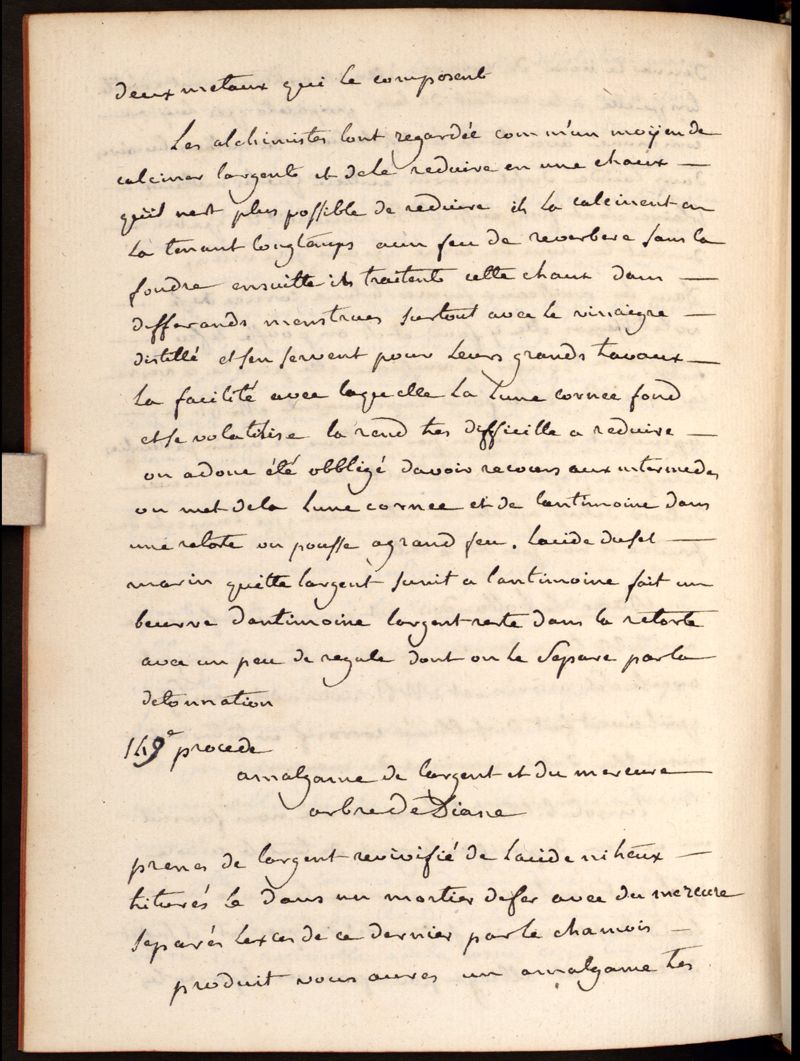 deux metaux qui le composent
Les alchimistes lont regardée comm'un moÿen de
calciner largent et dela reduire en une chaux —
quil nest plus possible de reduire ils la calcinent en
la tenant longtemps a un feu de reverbere sans la
fondre ensuitte ils traitent cette chaux dans —
differands menstrues surtout avec le vinaigre —
distillé et sen servent pour leurs grands tavaux —
la facilité avec laquelle la lune cornee fond
et se volatilise la rend tres difficille a reduire —
on a donc été obbligé davoir recours aux intermedes
on met dela lune cornee et de lantimoine dans
une retorte on pousse a grand feu. lacide du sel —
marin quitte largent sunit a lantimoine fait un
beurre dantimoine largent reste dans la retorte
avec un peu de regule dont on le separe par la
detonnation
149e procede
amalgame de largent et du mercure
arbre de Diane
prenes de largent revivifié de lacide nitreux —
triturés le dans un mortier de fer avec du mercure
separés lexces de ce dernier par le chamois —
produit vous aures un amalgame tres